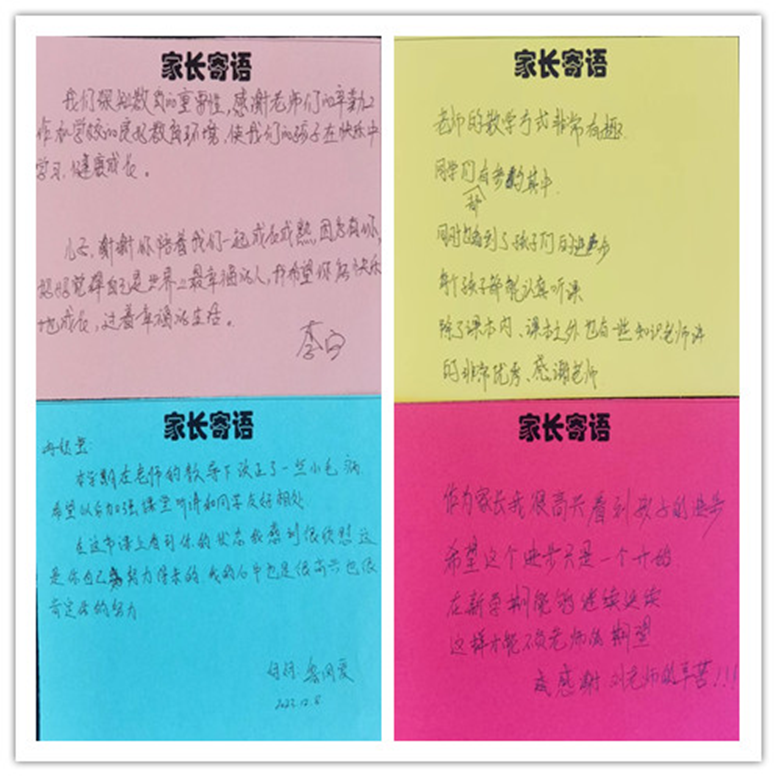 家长寄语
我们深知教育的重要性,感谢老师们的辛勤工
作和学校的良好教育环境,使我们的孩子在快乐中
学习,健康成长。
儿子,谢谢你陪着我们一起成长成熟,因为有你,
妈妈觉得自己是世界上最幸福的人,我希望你能快乐
地成长,过着幸福的生活。
家长寄语
老师的教学方式非常有趣.
同学们都有参与其中.
同时也看到了孩子们的进步
每个孩子都能认真听课
除了课本内、课本之外也有一些知识老师讲
的非常优秀、感谢老师
家长寄语
本学期在老师的教导下改正了一些小毛病.
希望以后加强课堂听讲和同学友好相处.
在这节课上看到你的状态我感到很欣慰.这
是你自己努力得来的.我的心中也是很高兴也很
肯定你的努力
妈妈:
2023.12.8
家长寄语
作为家长我很高兴看到孩子的进步
希望这个进步只是一个开始
在新学期能够继续延续
这样才能不负老师的期望
感谢刘老师的辛苦!!!